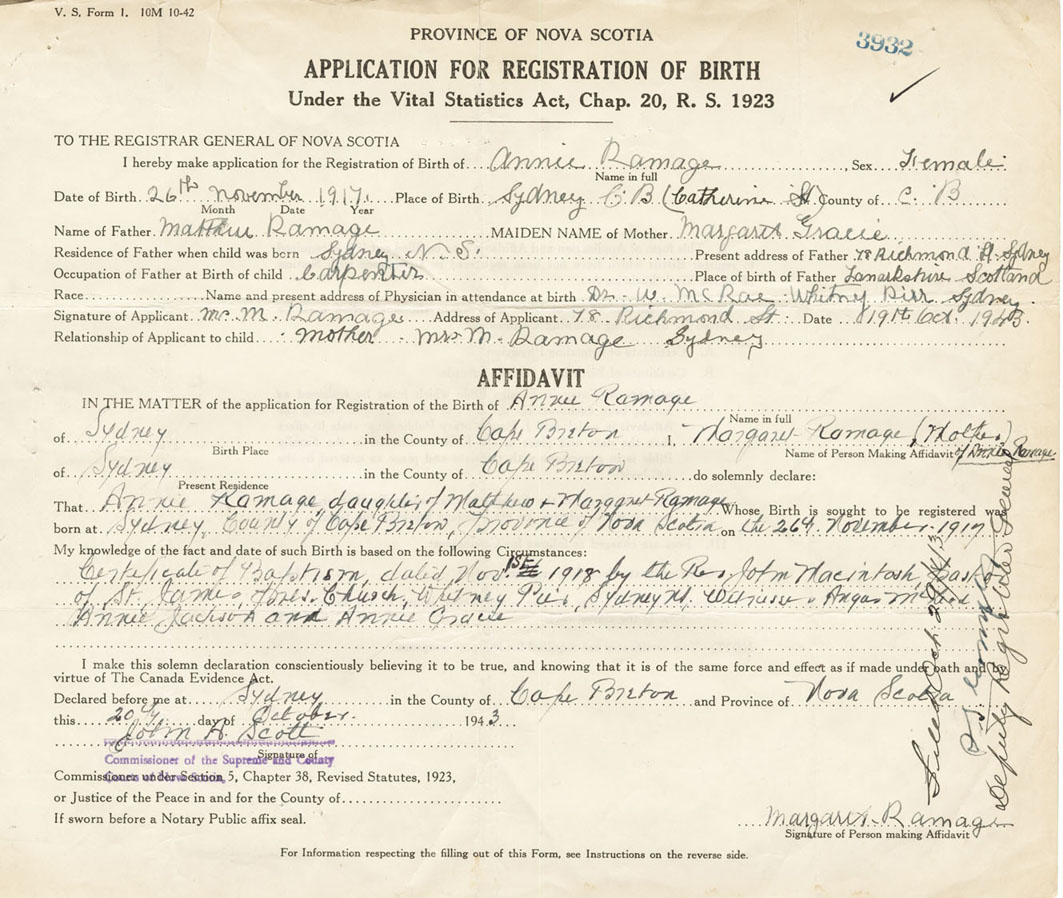 V. S. Form 1. 10M 10-42
PROVINCE OF NOVA SCOTIA
3932
APPLICATION FOR REGISTRATION OF BIRTH
Under the Vital Statistics Act, Chap. 20, R. S. 1923
TO THE REGISTRAR GENERAL OF NOVA SCOTIA
I hereby make application for the Registration of Birth of Annie Ramage, Sex Female
Name in full
Date of Birth 26th November 1917. Place of Birth Sydney C. B (Catherine St.) County of C. B
Month Date Year
Name of Father Matthew Ramage MAIDEN NAME of Mother Margaret Gracie
Residence of Father when child was born Sydney N. S. Present address of Father 78 Richmond St. Sydney
Occupation of Father at Birth of child Carpenter Place of birth of Father Lanarkshire Scotland
Race Name and present address of Physician in attendance at birth Dr. W. McRae Whitney Pier Sydney
Signature of Applicant Mrs. M. Ramage Address of Applicant 78 Richmond St. Date 19th Oct. 1943.
Relationship of Applicant to child mother Mrs M. Ramage Sydney
AFFIDAVIT
IN THE MATTER of the application for Registration of the Birth of Annie Ramage
Name in full
of Sydney in the County of Cape Breton I, Margaret Ramage (Mother)
Birth Place Name of Person Making Affidavit of Annie Ramage
of Sydney in the County of Cape Breton do solemnly declare:
Present Residence
That Annie Ramage, daughter of Matthew & Margaret Ramage Whose Birth is sought to be registered was
born at Sydney, County of Cape Breton, province of Nova Scotia on the 26th November 1917
My knowledge of the fact and date of such Birth is based on the following Circumstances:
Certificate of Baptism, dated Nov. 1st 1918 by the Rev John Macintosh, pastor
of St. James Pres. Church, Whitney Pier, Sydney NS, Witnesses Angus
Annie Jackson and Annie Gracie
I make this solemn declaration conscientiously believing it to be true, and knowing that it is of the same force and effect as if made under oath and by
virtue of The Canada Evidence Act.
Declared before me at Sydney in the County of Cape Breton and Province of Nova Scotia
this 20th day of October 1943
John A. Scott
Signature of
Commissioner of the Supreme and County
Courts of Nova Scotia
Commissioner under Section 5, Chapter 38, Revised Statutes, 1923,
or Justice of the Peace in and for the County of
If sworn before a Notary Public affix seal.
Margaret Ramage
Signature of Person making Affidavit
For Information respecting the filling out of this Form, see Instructions on the reverse side.
Filed Oct. 29/43
Deputy Registrar General